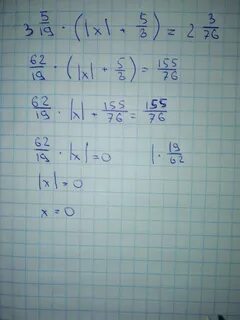 3 5/19 · (|x| + 5/8) = 2 3/76
62/19 · (|x| + 5/8) = 155/76
62/19 · |x| + 155/76 = 155/76
62/19 · |x| = 0 | · 19/62
|x| = 0
x = 0